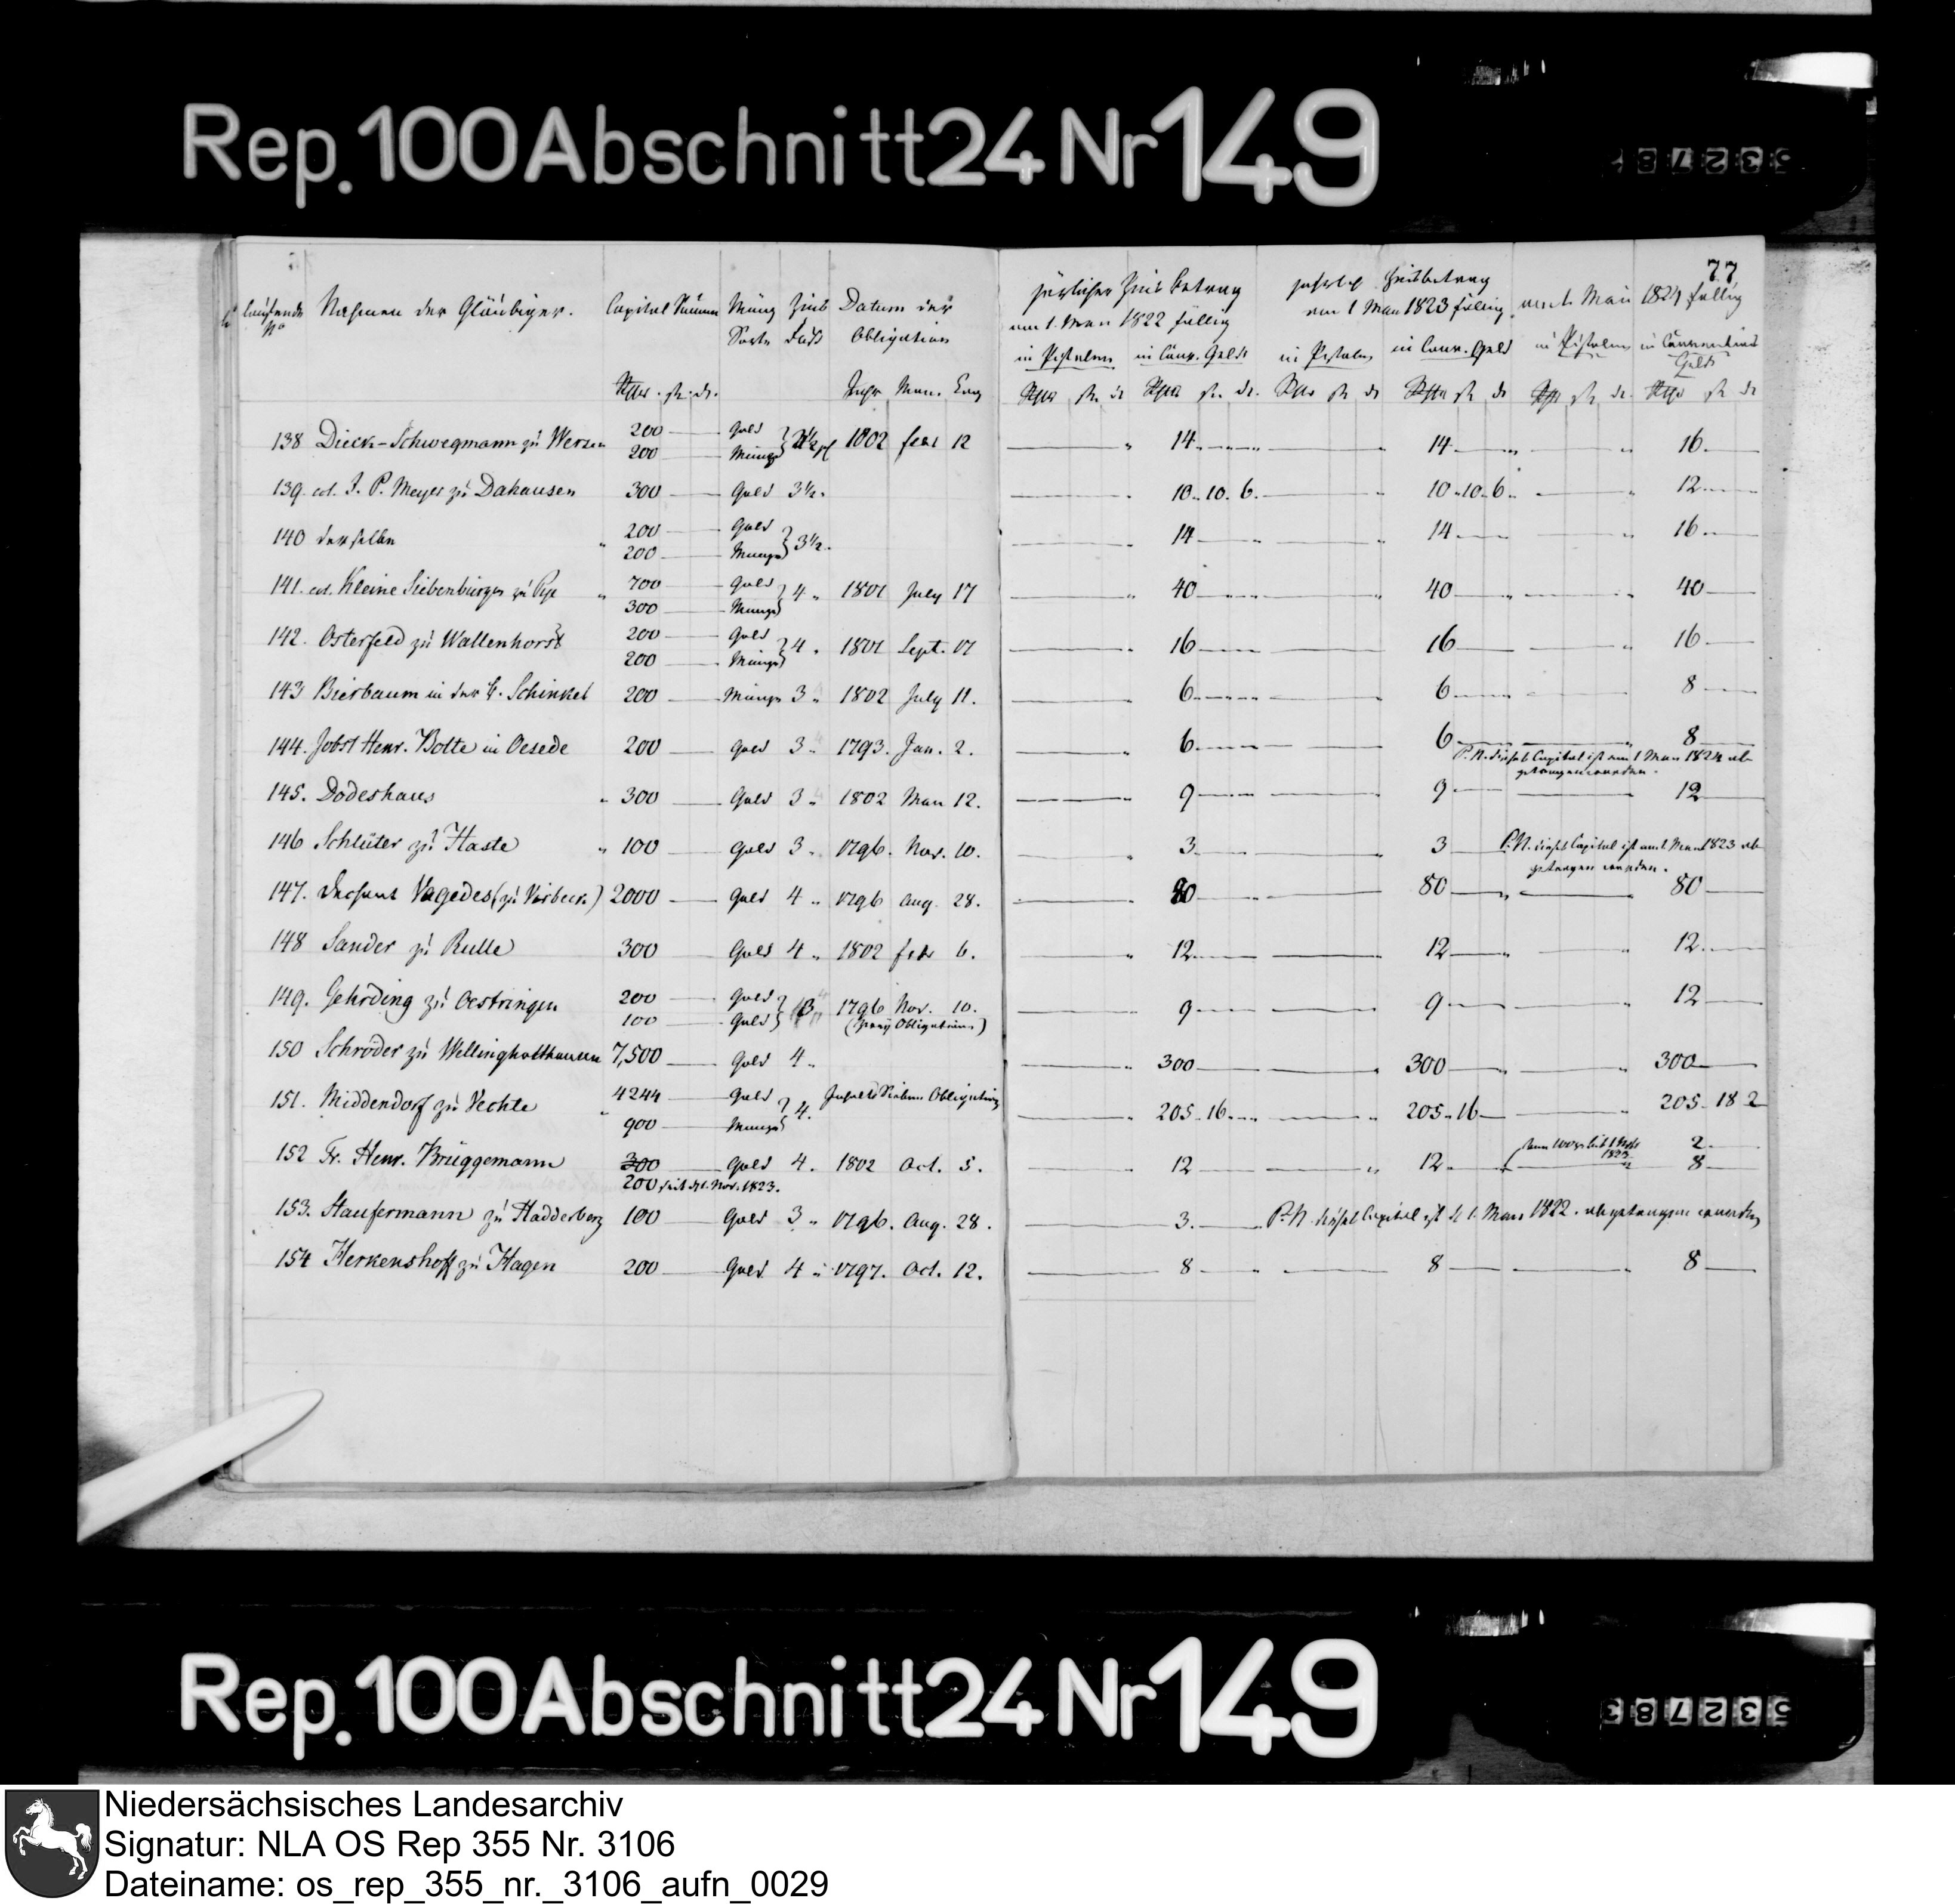 Rep. 100 Abschnitt 24 Nr 149
77
laufende No Nahmen der Gläubiger. Capital Summe Münz Sorte Zins Fuß Datum der Obligation
jährlicher Zins Betrag am 1. Man 1822 fällig
jährlich Zinsbetrag am 1 Man 1823 fällig
am 1. Man 1824 fällig
in Pistolen in Conv. Gelde in Pistolen in Conv. Geld in Pistolen in Conventions Gelde
Jahr Mon. Tag
138 Dieck-Schwegmann zu Wersen 200 Gold 200 Münze 1802 febr 12 14 14 16
139. col. J. P. Meyer zu Dahausen 300 Gold 3½. 10. 10. 6. 10. 10. 6. 12
140 derselbe 200 Gold 200 Münze 3½. 14 14 16
141. col. Kleine Siebenbürgen zu Pye 700 Gold 300 Münze 4 1801 July 17 40 40 40
142. Osterfeld zu Wallenhorst 200 Gold 200 Münze 4 1801 Sept. 17 16 16 16
143 Bierbaum in der B. Schinkel 200 Münze 3 1802 July 11. 6 6 8
144. Jobst Henr. Bolte in Oesede 200 Gold 3 1793. Jan. 2. 6 6 8
P.N. dieses Capital ist am 1 Man 1824 abgetragen worden.
145. Dodeshaus 300 Gold 3 1802 Man 12. 9 9 12
146 Schlüter zu Haste 100 Gold 3 1796. Nov. 10. 3 3
P.N. dieses Capital ist am 1 Man 1823 abgetragen worden.
147. Dechant Vagedes (zu Vörden) 2000 Gold 4 1796 Aug. 28. 80 80 80
148 Sander zu Rulle 300 Gold 4 1802 febr 6. 12 12 12
149. Gehrding zu Oestringen 200 Gold 100 Gold 3 1796 Nov. 10. 9 9 12
(zwey Obligationen)
150 Schröder zu Wellingholthausen 7,500 Gold 4 300 300 300
151. Middendorf zu Vechte 4244 Gold 900 Münze 4. Inhalts Sieben Obligationen 205. 16 205. 16 205. 18 2
152 Fr. Henr. Brüggemann 300 Gold 4. 1802 Oct. 5. 12 12 2 8
200 seit d. 1. Nov. 1823.
153. Staufermann zu Hadderberg 100 Gold 3 1796. Aug. 28. 3. P.N. dieses Capital ist d. 1. Man 1822. abgetragen worden
154 Herkenshoff zu Hagen 200 Gold 4 1797. Oct. 12. 8 8 8
Rep. 100 Abschnitt 24 Nr 149
532783
Niedersächsisches Landesarchiv
Signatur: NLA OS Rep 355 Nr. 3106
Dateiname: os_rep_355_nr._3106_aufn_0029